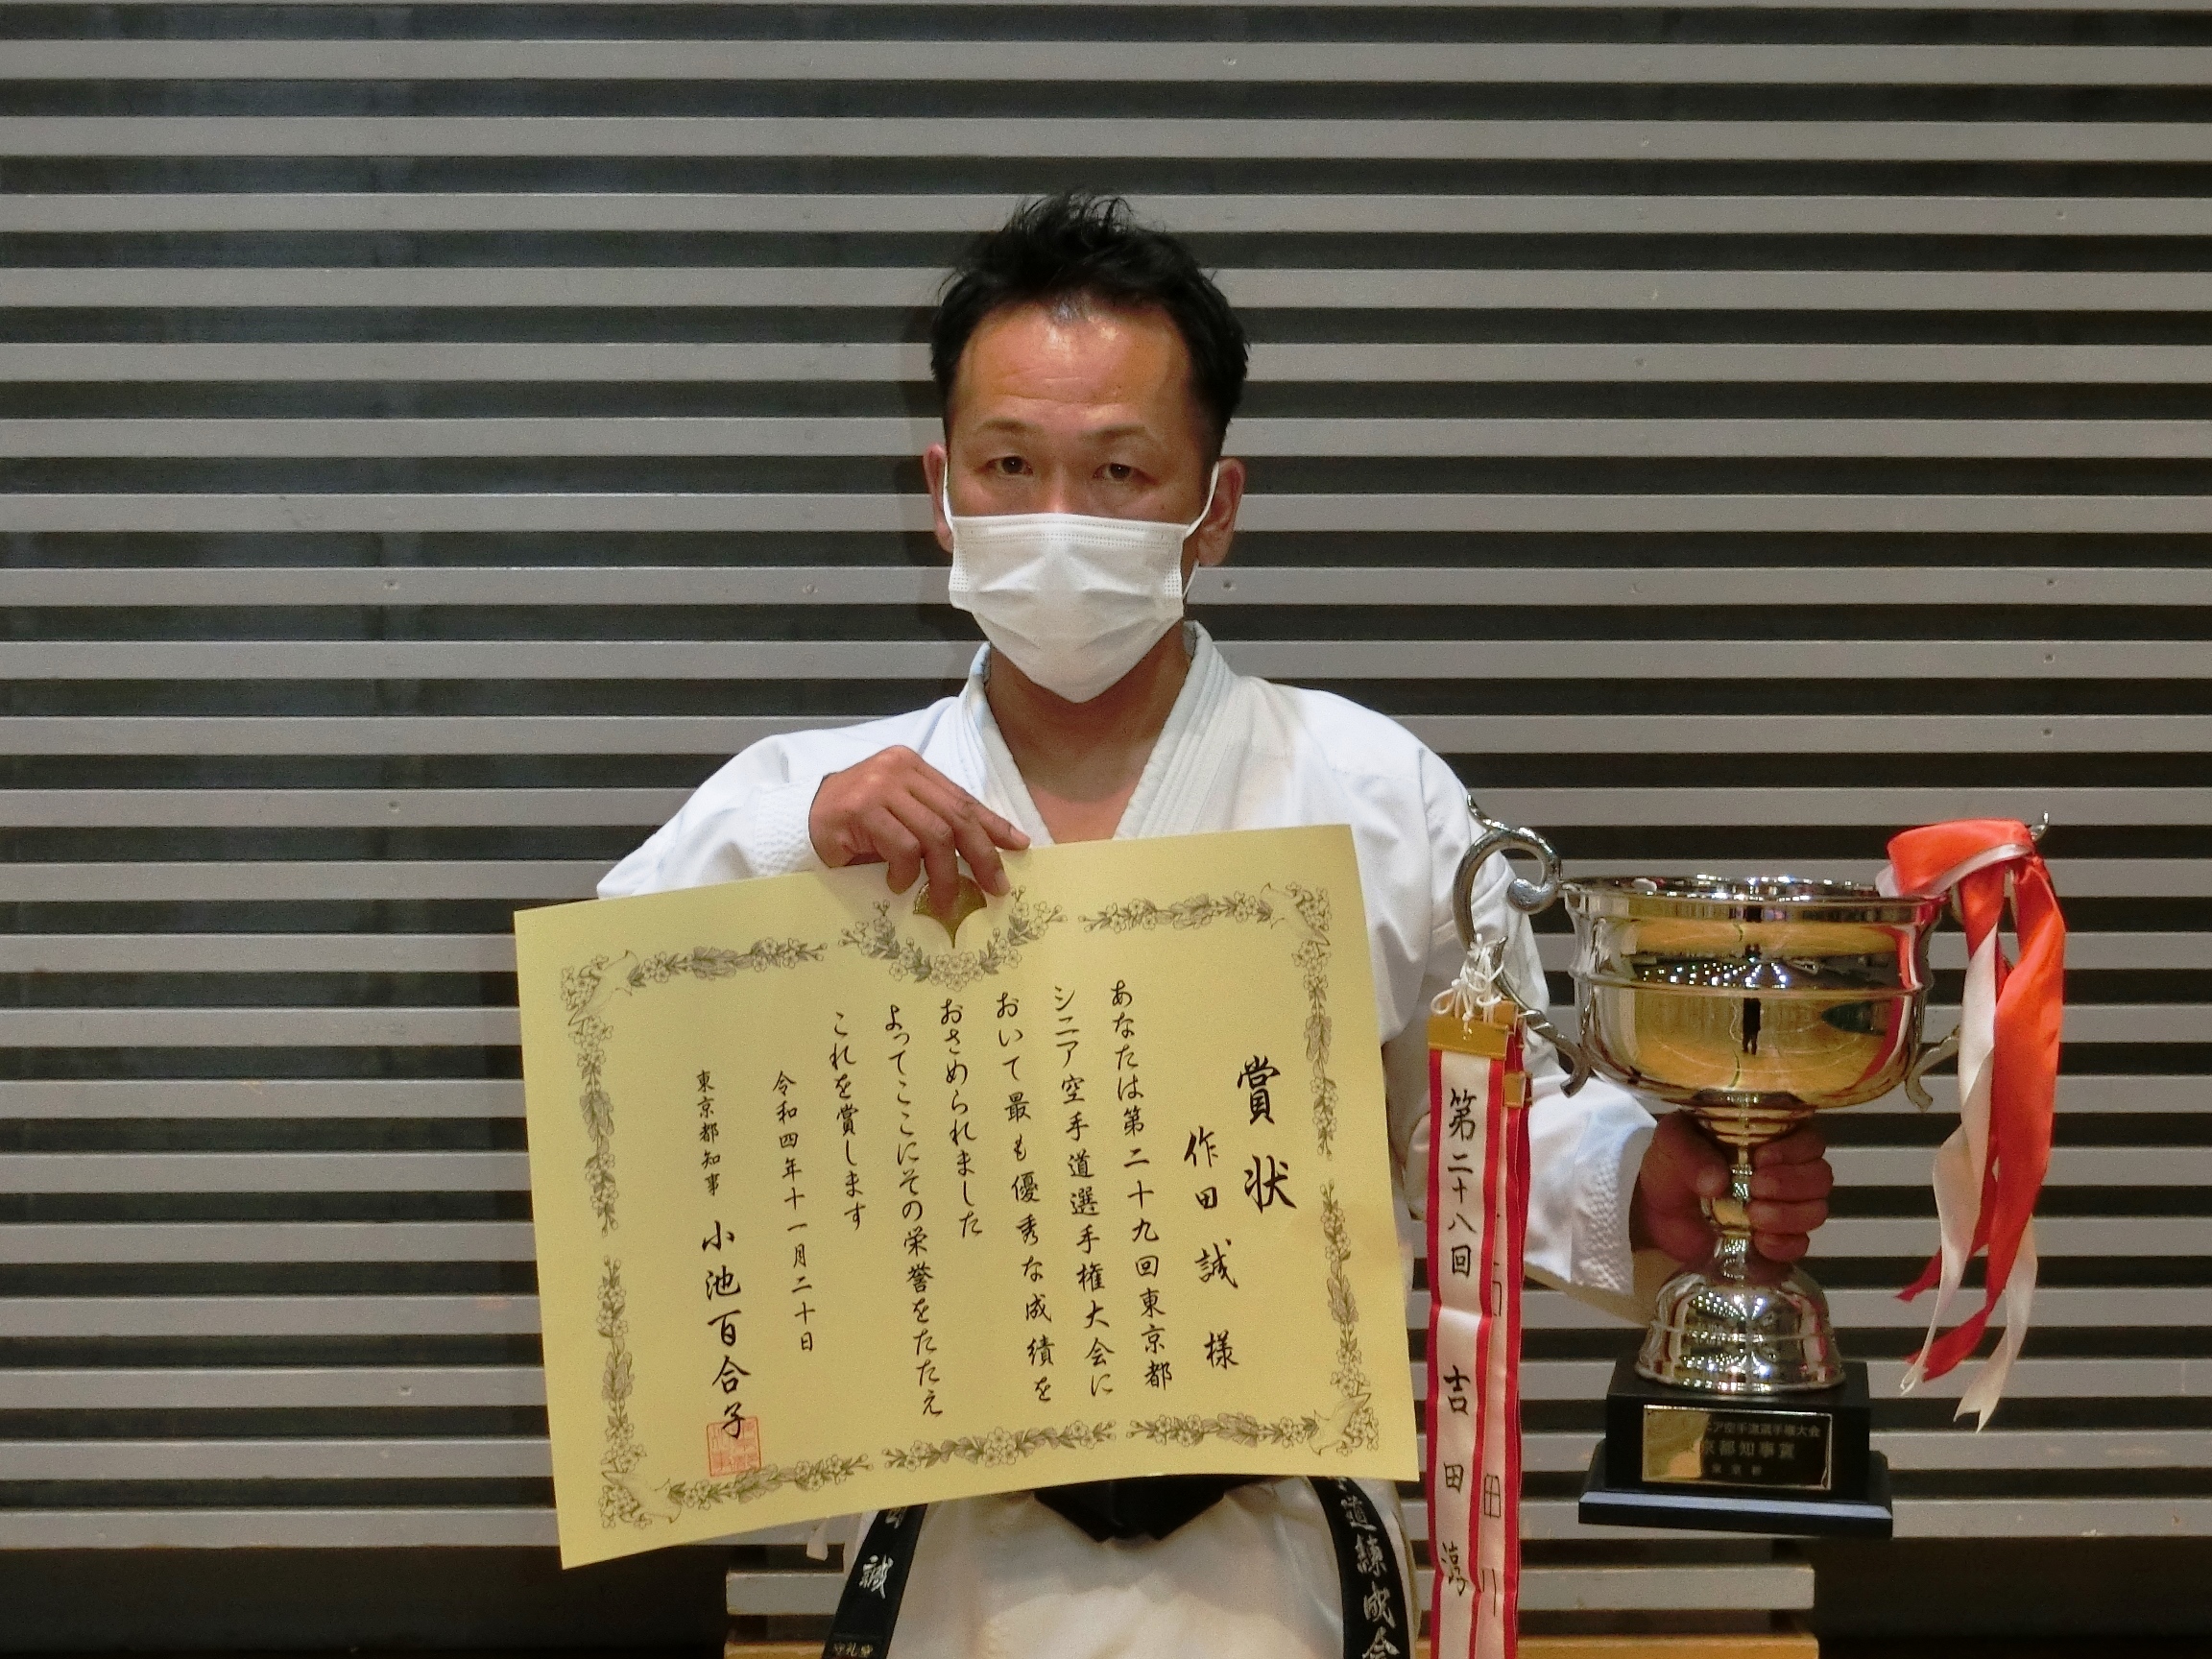 賞状
作田誠様
あなたは第二十九回東京都
シニア空手道選手権大会に
おいて最も優秀な成績を
おさめられました
よってここにその栄誉をたたえ
これを賞します
令和四年十一月二十日
東京都知事 小池百合子
第二十八回 吉田
田川
ア空手道選手権大会
京都知事賞
東京都
誠
道錬成会